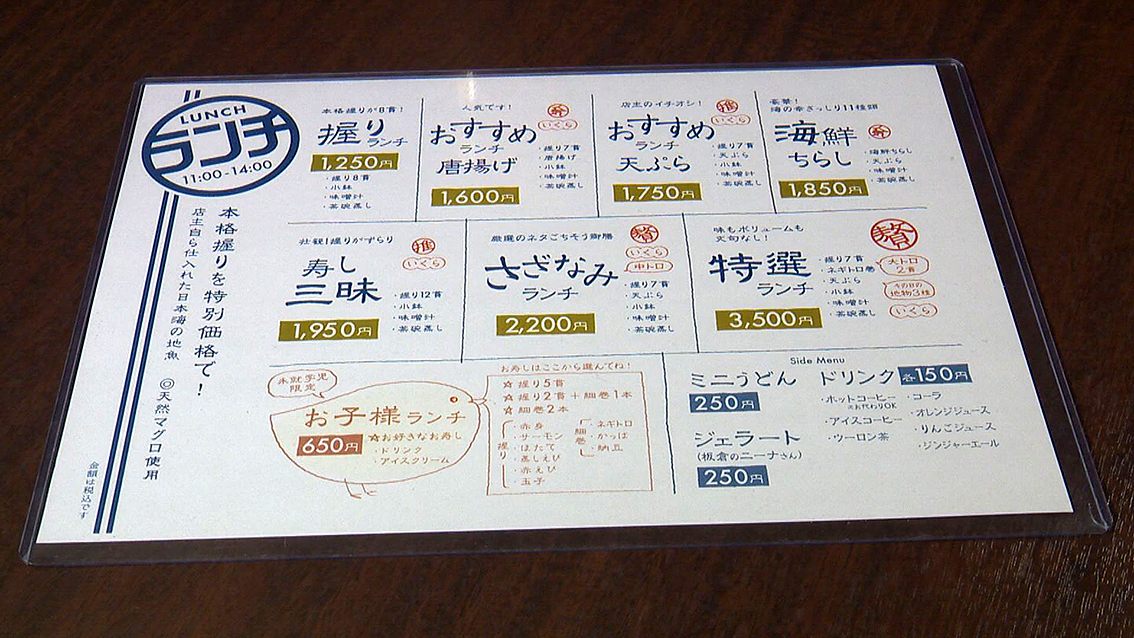 LUNCH
ランチ
11:00-14:00
本格握りを特別価格で！
店主自ら仕入れた日本海の地魚
◎天然マグロ使用
金額は税込です
本格握りが8貫！
握り
ランチ
1,250円
・握り8貫
・小鉢
・味噌汁
・茶碗蒸し
人気です！
いくら
おすすめ
ランチ
唐揚げ
1,600円
・握り7貫
・唐揚げ
・小鉢
・味噌汁
・茶碗蒸し
店主のイチオシ！
推
いくら
おすすめ
ランチ
天ぷら
1,750円
・握り7貫
・天ぷら
・小鉢
・味噌汁
・茶碗蒸し
豪華！
海の幸ざっしり11種類
海鮮
ちらし
1,850円
・海鮮ちらし
・天ぷら
・味噌汁
・茶碗蒸し
壮観！握りがずらり
推
いくら
寿し
三昧
1,950円
・握り12貫
・小鉢
・味噌汁
・茶碗蒸し
厳選のネタごちそう御膳
贅
いくら
中トロ
さざなみ
ランチ
2,200円
・握り7貫
・天ぷら
・小鉢
・味噌汁
・茶碗蒸し
味もボリュームも
文句なし！
贅
特選
ランチ
3,500円
・握り7貫
・ネギトロ巻
・天ぷら
・小鉢
・味噌汁
・茶碗蒸し
大トロ
2貫
今の日の
地物3種
いくら
未就学児
限定
お子様ランチ
650円
☆お好きなお寿し
・ドリンク
・アイスクリーム
お寿しはここから選んでね！
☆握り5貫
☆握り2貫＋細巻1本
☆細巻2本
握り
・赤身
・サーモン
・ほたて
・蒸しえび
・赤えび
・玉子
細巻
・ネギトロ
・かっぱ
・納豆
Side Menu
ミニうどん
250円
ジェラート
(板倉のニーナさん)
250円
ドリンク 各150円
・ホットコーヒー
※お代わりOK
・アイスコーヒー
・ウーロン茶
・コーラ
・オレンジジュース
・りんごジュース
・ジンジャーエール